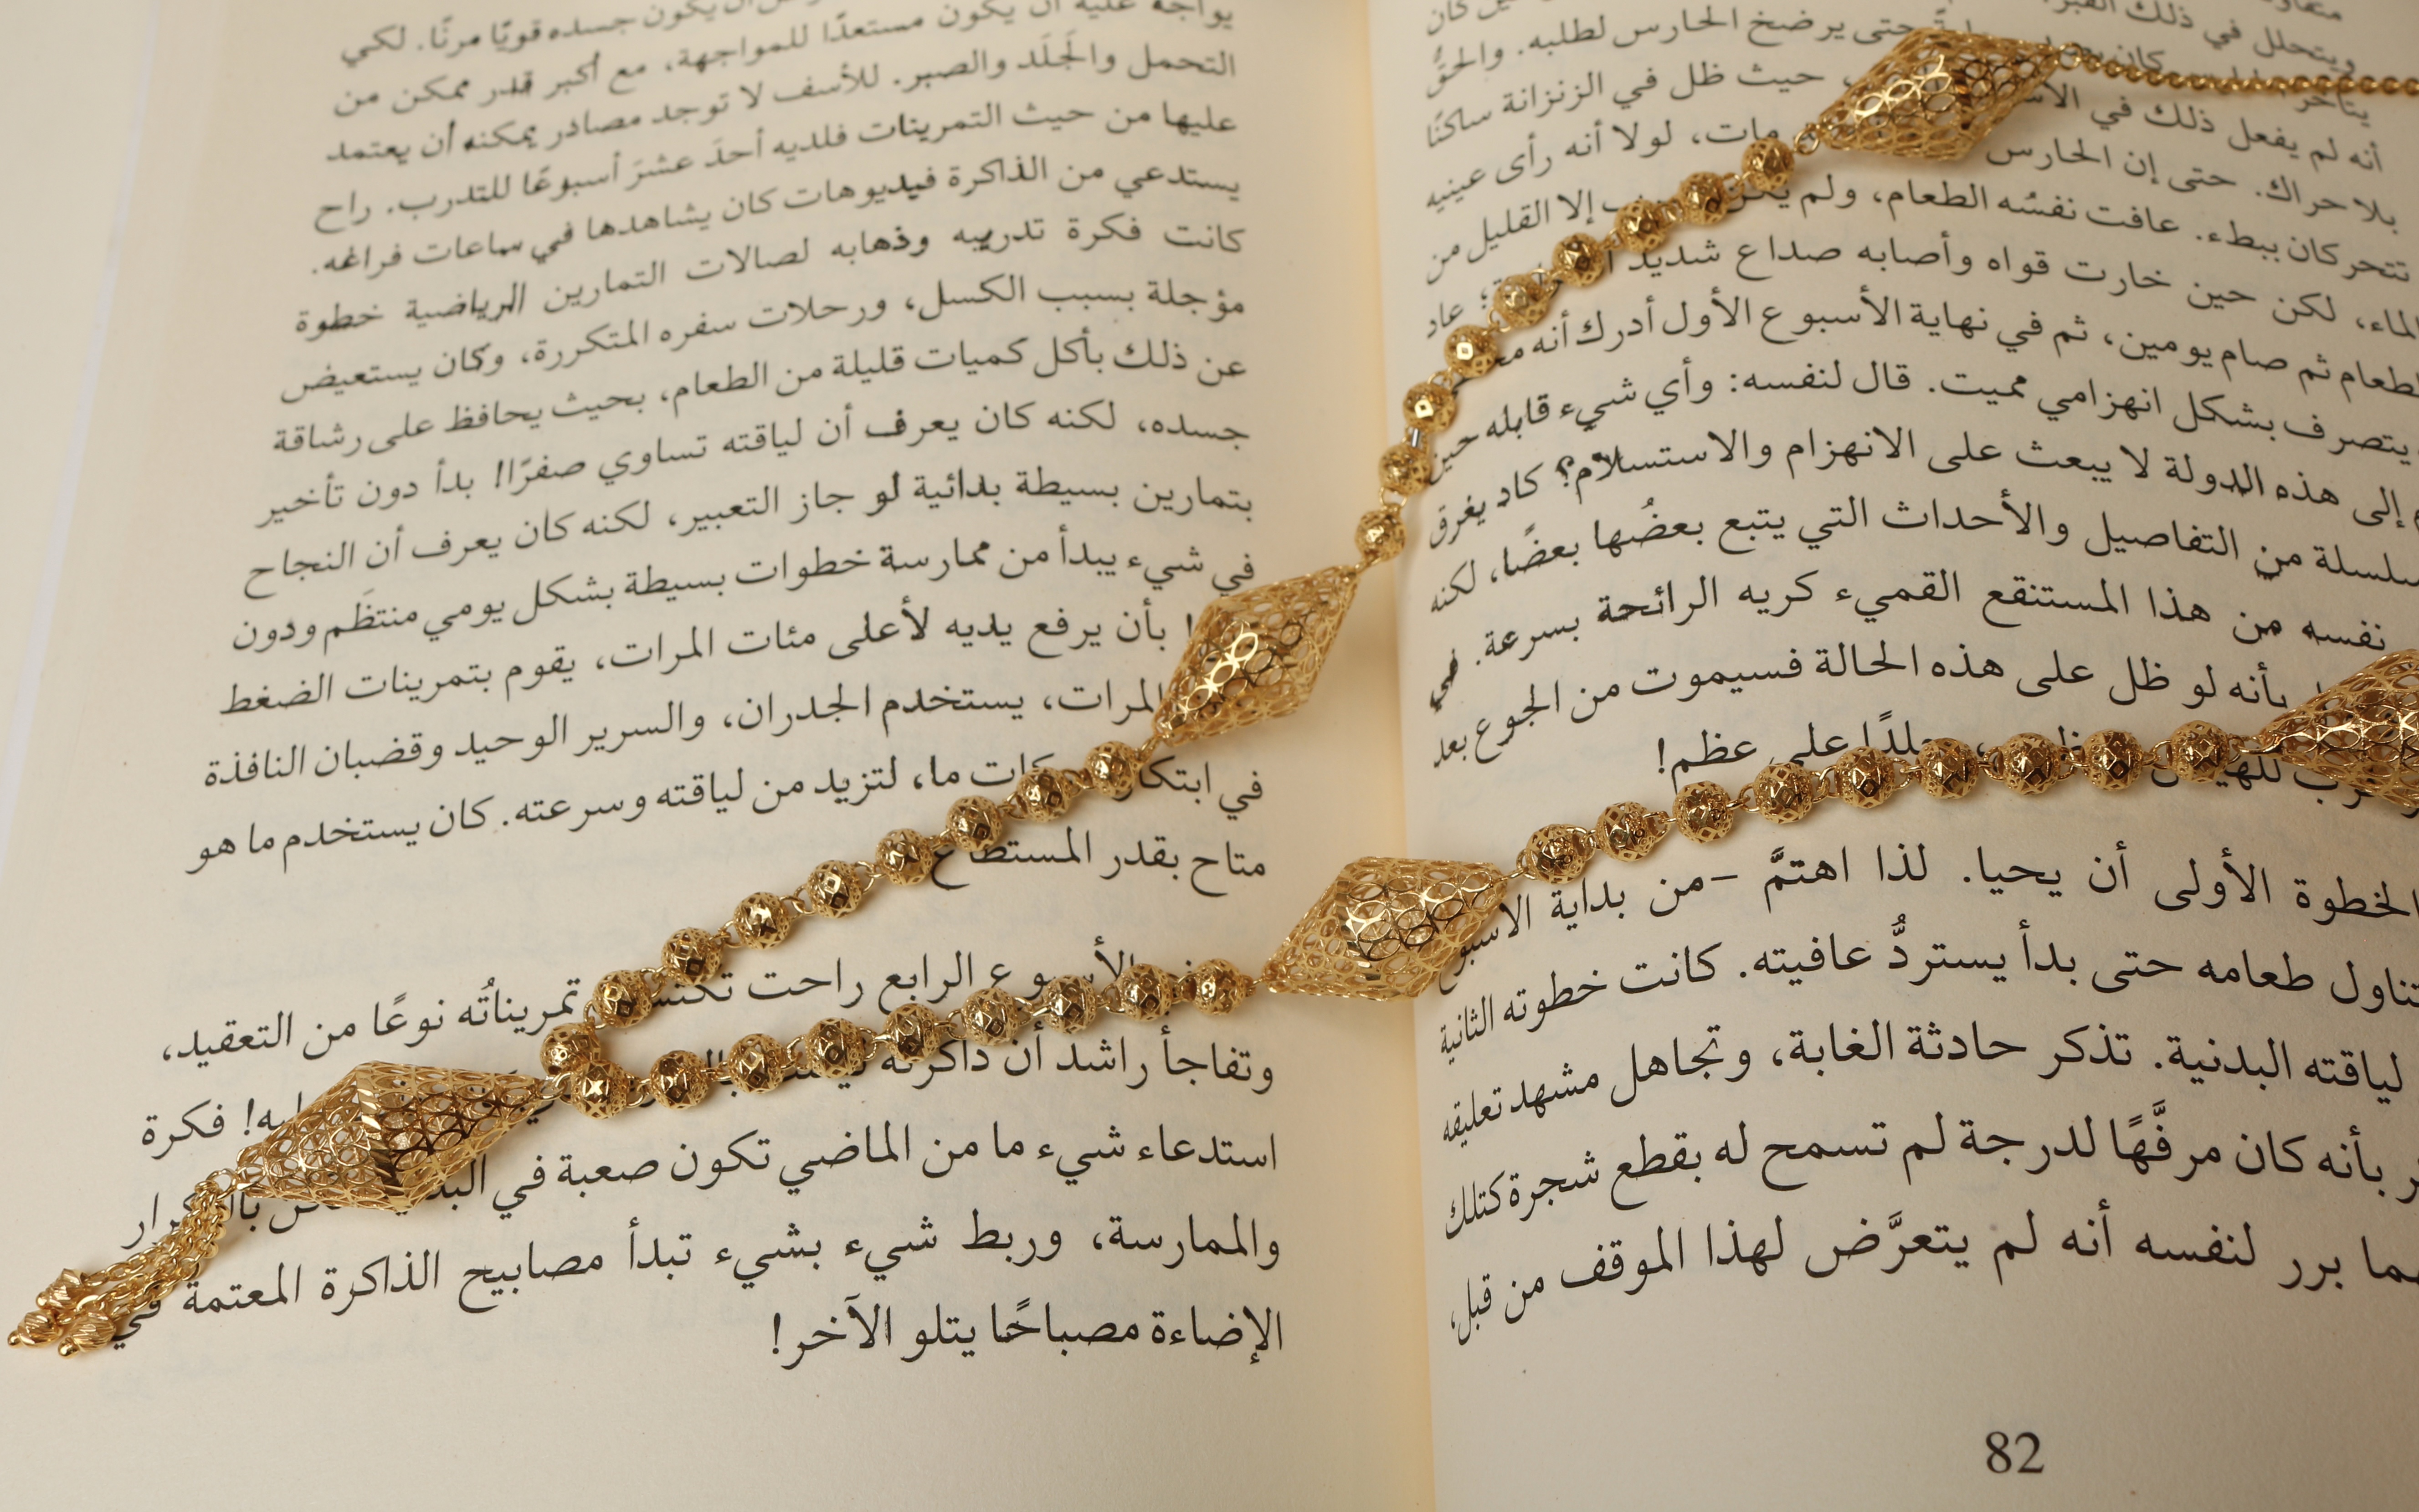 ويتحلل في ذلك القبر
حتى يرضخ الحارس لطلبه. والحقُّ
أنه لم يفعل ذلك في حيث ظل في الزنزانة ساكنًا
بلا حراك. حتى إن الحارس مات، لولا أنه رأى عينيه
تتحركان ببطء. عافت نفسُه الطعام، ولم إلا القليل من
الماء، لكن حين خارت قواه وأصابه صداع شديد عاد
للطعام ثم صام يومين، ثم في نهاية الأسبوع الأول أدرك أنه
يتصرف بشكل انهزامي مميت. قال لنفسه: وأي شيء قابله حين
إلى هذه الدولة لا يبعث على الانهزام والاستسلام؟ كاد يغرق
سلسلة من التفاصيل والأحداث التي يتبع بعضُها بعضًا، لكنه
نفسه من هذا المستنقع القميء كريه الرائحة بسرعة. في
بأنه لو ظل على هذه الحالة فسيموت من الجوع بعد
جلدًا على عظم!
الخطوة الأولى أن يحيا. لذا اهتمَّ –من بداية الأسبوع
تناول طعامه حتى بدأ يستردُّ عافيته. كانت خطوته الثانية
لياقته البدنية. تذكر حادثة الغابة، وتجاهل مشهد تعليقه
بأنه كان مرفَّهًا لدرجة لم تسمح له بقطع شجرة كتلك
برر لنفسه أنه لم يتعرَّض لهذا الموقف من قبل،
82
يواجه عليه أن يكون مستعدًا للمواجهة، مع أكبر قدر ممكن من
التحمل والجَلَد والصبر. للأسف لا توجد مصادر يمكنه أن يعتمد
عليها من حيث التمرينات فلديه أحدَ عشرَ أسبوعًا للتدرب. راح
يستدعي من الذاكرة فيديوهات كان يشاهدها في ساعات فراغه.
كانت فكرة تدريبه وذهابه لصالات التمارين الرياضية خطوة
مؤجلة بسبب الكسل، ورحلات سفره المتكررة، وكان يستعيض
عن ذلك بأكل كميات قليلة من الطعام، بحيث يحافظ على رشاقة
جسده، لكنه كان يعرف أن لياقته تساوي صفرًا! بدأ دون تأخير
بتمارين بسيطة بدائية لو جاز التعبير، لكنه كان يعرف أن النجاح
في شيء يبدأ من ممارسة خطوات بسيطة بشكل يومي منتظَم ودون
بأن يرفع يديه لأعلى مئات المرات، يقوم بتمرينات الضغط
المرات، يستخدم الجدران، والسرير الوحيد وقضبان النافذة
في ابتكار حركات ما، لتزيد من لياقته وسرعته. كان يستخدم ما هو
متاح بقدر المستطاع
الأسبوع الرابع راحت تمريناتُه نوعًا من التعقيد،
وتفاجأ راشد أن ذاكرته فكرة
استدعاء شيء ما من الماضي تكون صعبة في
والممارسة، وربط شيء بشيء تبدأ مصابيح الذاكرة المعتمة في
الإضاءة مصباحًا يتلو الآخر!